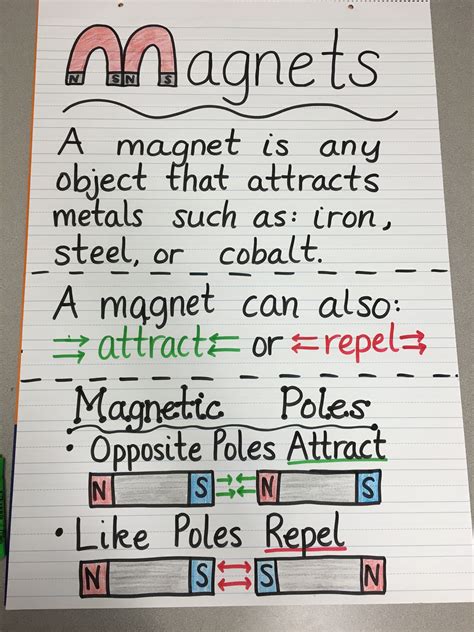 Magnets
N SN S
A magnet is any
object that attracts
metals such as: iron,
steel, or cobalt.
A magnet can also:
attract or repel
Magnetic Poles
• Opposite Poles Attract
N S N S
• Like Poles Repel
N S S N